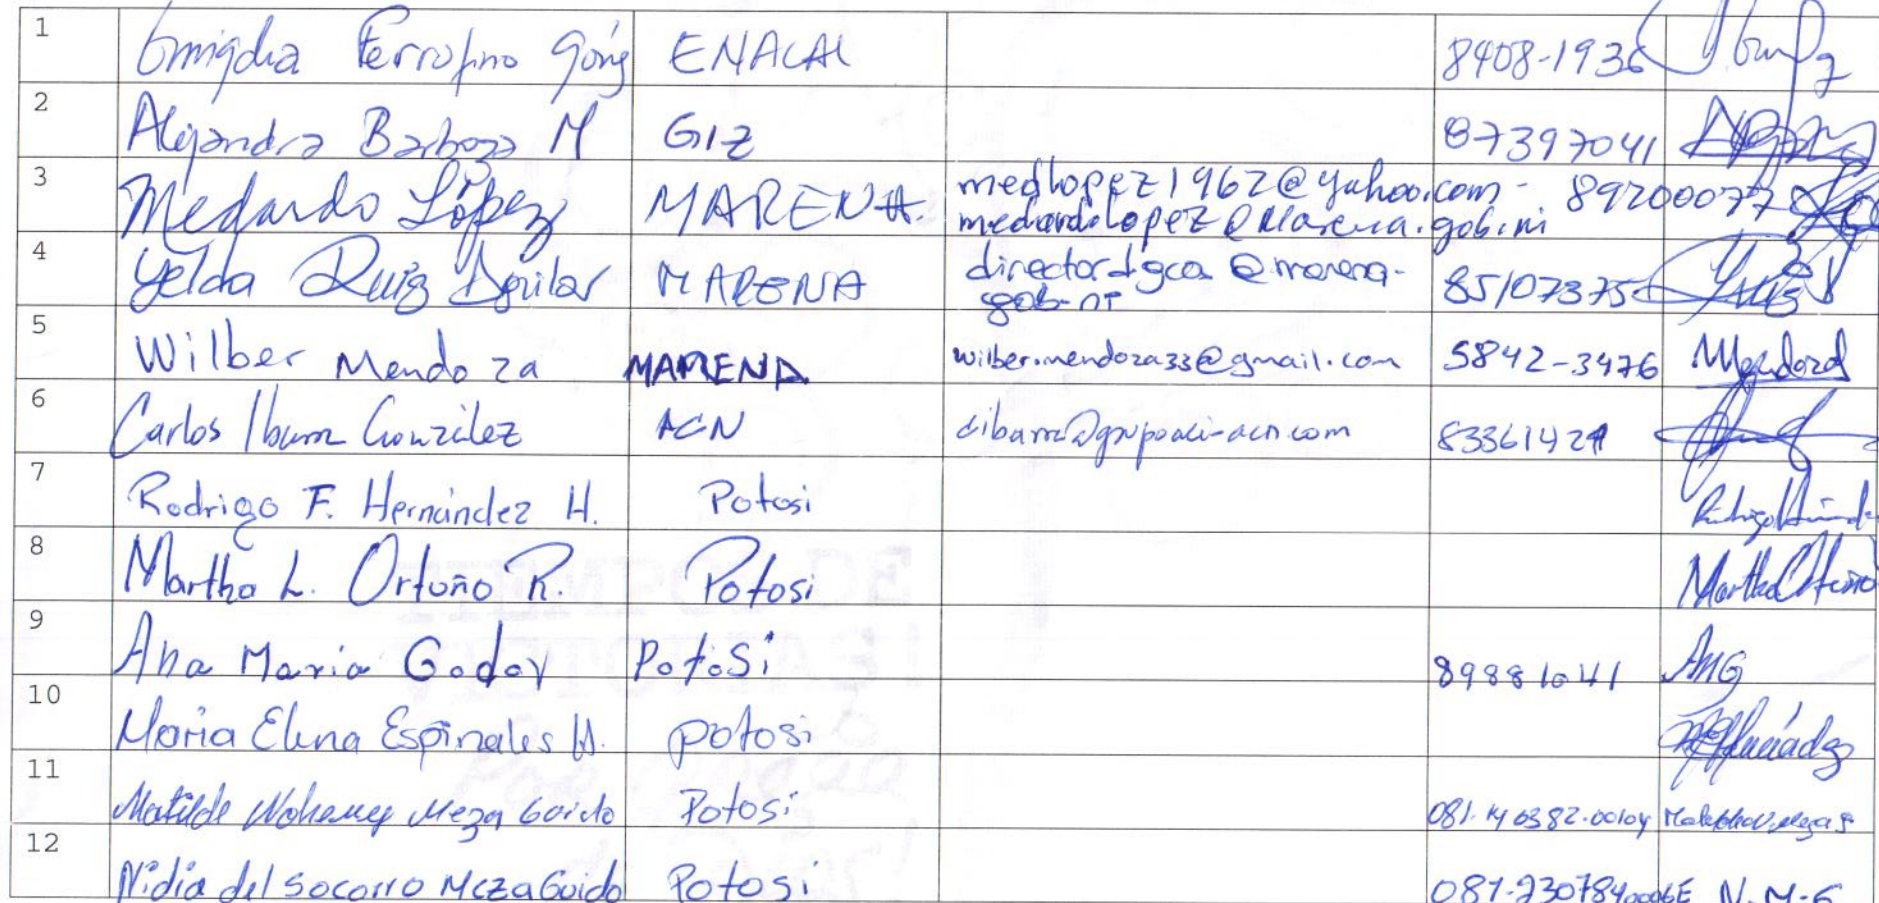 1 Emigdia Terrofino Góng ENACAL 8408-1936
2 Alejandra Barboza M GIZ 87397041
3 Medardo López MARENA medlopez1962@yahoo.com - 89200077
medardo.lopez@Marena.gob.ni
4 Yelda Ruiz Aguilar MARENA directordgca@marena- 85107375
gob-ni
5 Wilber Mendoza MARENA wilber.mendoza33@gmail.com 5842-3476 Mendoza
6 Carlos Ibarra González ACN cibarra@grupoaci-acn.com
7 Rodrigo F. Hernández H. Potosi
8 Martha L. Ortuño R. Potosi Martha Ortuño
9 Ana Maria Godoy Potosi 89881041 AMG
10 Maria Elena Espinales H. potosi
11 Matilde Nohemy Meza Guido Potosi
12 Nidia del Socorro Meza Guido Potosi N.M-G